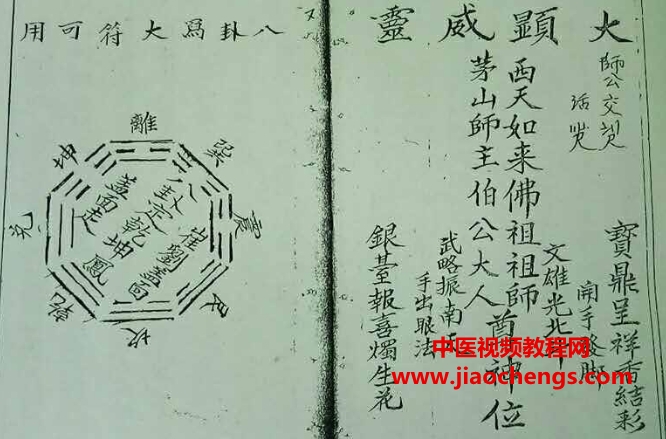 大顯威靈
師公交
寶鼎呈祥香結彩
開手發脚
文雄光北
西天如来佛祖祖師
茅山師主伯公大人
神位
武略振南
手出眼法
銀臺報喜燭生花
八卦爲大符可用
離
巽
震
艮
坎
乾
兑
坤
劉蓋面
八卦定乾坤鳳
蓋面走
中医视频教程网
www.jiaochengs.com